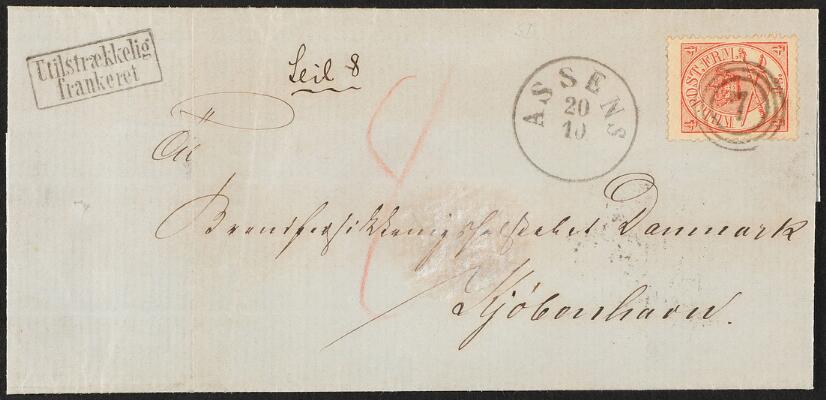 Utilstrækkelig
frankeret
ASSENS
20
10
7
Til
Brandforsikkringsselskabet Danmark
Kjöbenhavn.
8